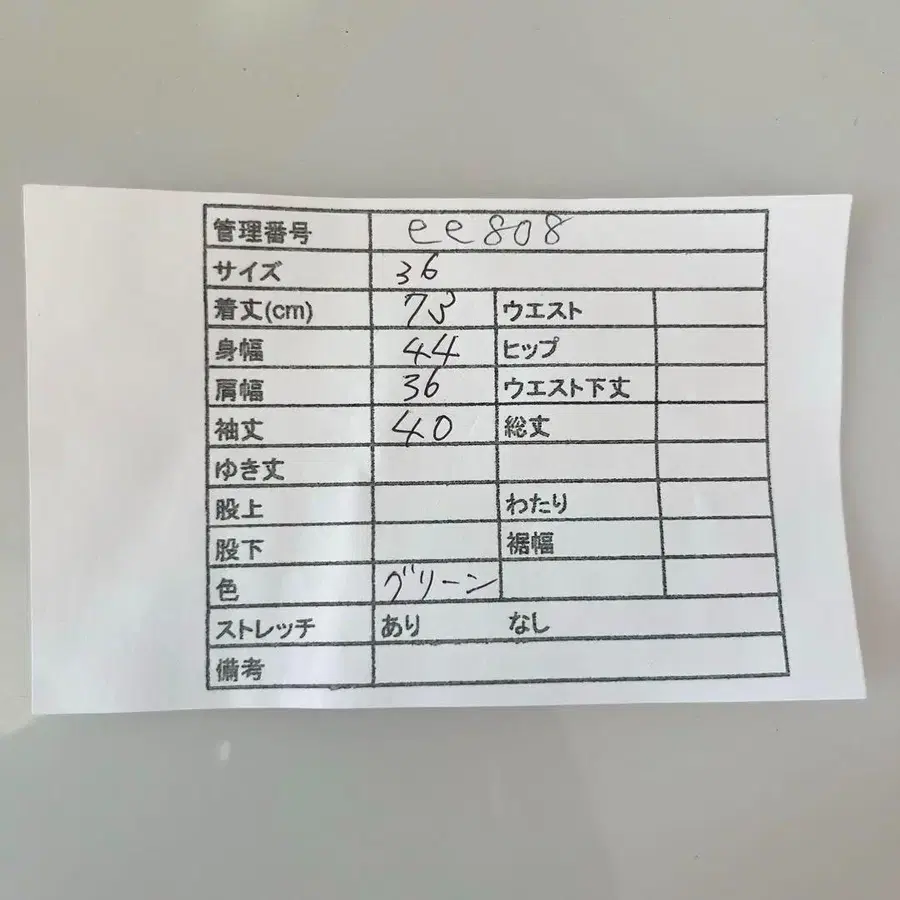 管理番号 ee808
サイズ 36
着丈(cm) 73 ウエスト
身幅 44 ヒップ
肩幅 36 ウエスト下丈
袖丈 40 総丈
ゆき丈
股上 わたり
股下 裾幅
色 グリーン
ストレッチ あり なし
備考